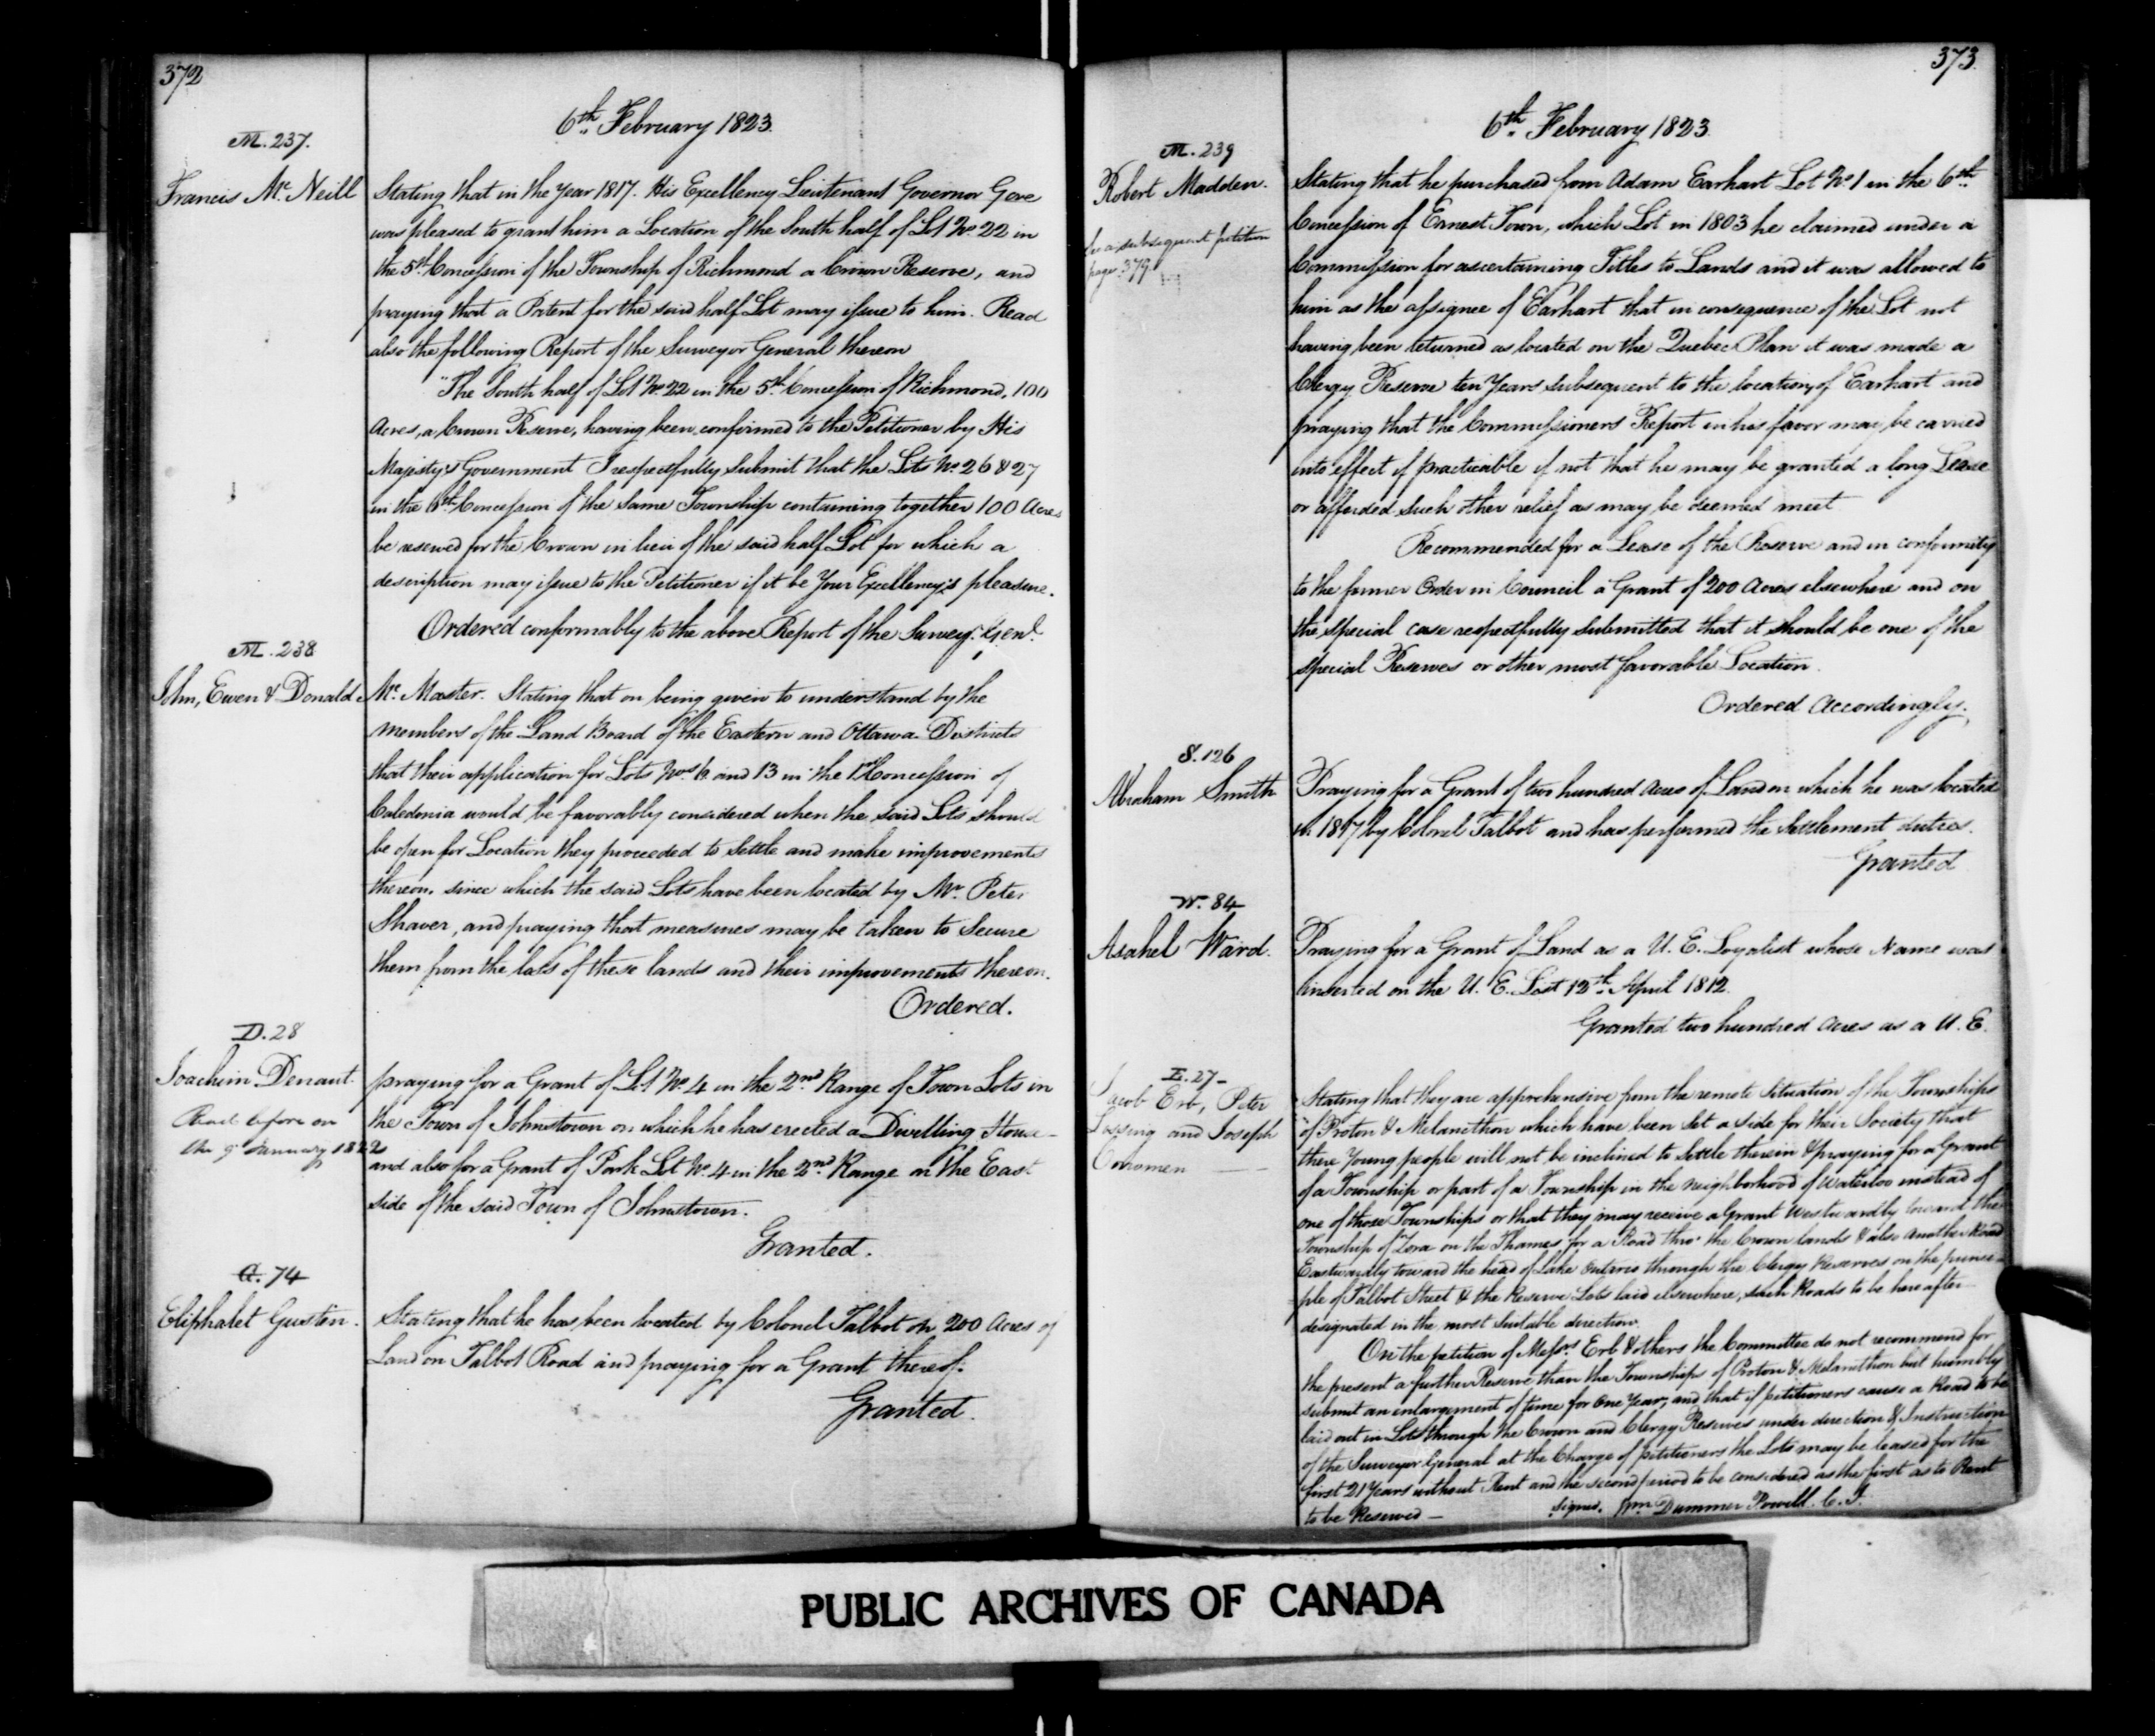 372
6th February 1823.
M. 237.
Francis Mc Neill
Stating that in the Year 1817. His Excellency Lieutenant Governor Gore
was pleased to grant him a Location of the South half of Lot No. 22 in
the 5th Concession of the Township of Richmond a Crown Reserve, and
praying that a Patent for the said half Lot may issue to him. Read
also the following Report of the Surveyor General thereon
"The South half of Lot No. 22 in the 5th Concession of Richmond, 100
Acres, a Crown Reserve, having been confirmed to the Petitioner by His
Majesty's Government I respectfully submit that the Lots No. 26 & 27
in the Concession of the same Township containing together 100 Acres
be reserved for the Crown in lieu of the said half Lot for which a
description may issue to the Petitioner if it be Your Excellency's pleasure.
Ordered conformably to the above Report of the Survey.r Genl.
M. 238
John, Ewen & Donald
Mc. Master. Stating that on being given to understand by the
members of the Land Board of the Eastern and Ottawa Districts
that their application for Lots Nos and 13 in the Concession of
Caledonia would be favorably considered when the said Lots should
be open for Location they proceeded to Settle and make improvements
thereon, since which the said Lots have been located by Mr. Peter
Shaver, and praying that measures may be taken to Secure
them from the loss of these lands and their improvements thereon.
Ordered.
D. 28
Joachim Denaut.
Read before on
the 9 January 1822
praying for a Grant of Lot No. 4 in the 2nd Range of Town Lots in
the Town of Johnstown on which he has erected a Dwelling House
and also for a Grant of Park Lot No. 4 in the 2nd Range on the East
side of the said Town of Johnstown.
Granted.
G. 74
Eliphalet Gustin.
Stating that he has been located by Colonel Talbot on 200 Acres of
Land on Talbot Road and praying for a Grant thereof.
Granted.
373
6th February 1823.
M. 239
Robert Madden.
subsequent petition
page 379
Stating that he purchased from Adam Earhart Lot No 1 in the 6th
Concession of Ernest Town, which Lot in 1803 he claimed under a
Commission for ascertaining Titles to Lands and it was allowed to
him as the assignee of Earhart that in consequence of the Lot not
having been returned as located on the Quebec Plan it was made a
Clergy Reserve ten Years subsequent to the location of Earhart and
praying that the Commissioners Report in his favor may be carried
into effect if practicable if not that he may be granted a long Lease
or afforded such other relief as may be deemed meet
Recommended for a Lease of the Reserve and in conformity
to the former Order in Council a Grant of 200 Acres elsewhere and on
the special case respectfully submitted that it should be one of the
special Reserves or other most favorable Location.
Ordered Accordingly.
S. 126
Abraham Smith
Praying for a Grant of two hundred Acres of Land on which he was located
in 1817 by Colonel Talbot and has performed the Settlement duties.
Granted
W. 84
Asahel Ward.
Praying for a Grant of Land as a U. E. Loyalist whose Name was
inserted on the U. E. List 12th April 1812.
Granted two hundred Acres as a U. E.
E. 27
Jacob Erb, Peter
and Joseph
Stating that they are apprehensive from the remote Situation of the Townships
of Proton & Melancthon which have been Set a side for their Society that
there Young people will not be inclined to Settle therein & praying for a Grant
of a Township or part of a Township in the neighborhood of Waterloo instead of
one of those Townships or that they may receive a Grant Westwardly toward the
Township of Zora on the Thames for a Road thro' the Crown lands & also another Road
Eastwardly toward the head of Lake Ontario through the Clergy Reserves on the princi-
ple of Talbot Street & the Reserve Lots laid elsewhere, such Roads to be hereafter
designated in the most Suitable direction.
On the petition of Messrs Erb & others the Committee do not recommend for
the present a further Reserve than the Townships of Proton & Melancthon but humbly
submit an enlargement of time for One Year, and that if petitioners cause a Road to be
laid out in Lots through the Crown and Clergy Reserves under direction & Instruction
of the Surveyor General at the Charge of petitioners the Lots may be leased for the
first 21 Years without Rent and the second period to be considered as the first as to Rent
to be Reserved —
Signed. Wm Dummer Powell. C. J.
PUBLIC ARCHIVES OF CANADA